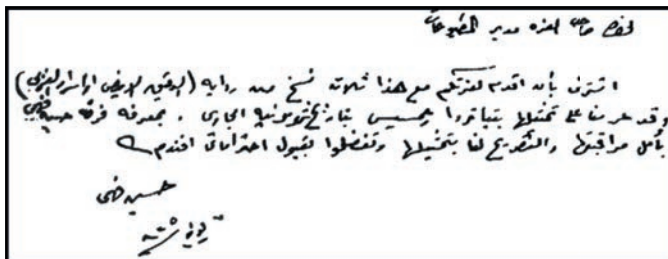 لحضرة صاحب العزه مدير المطبوعات
اتشرف بأن اقدم لعزتكم مع هذا ثلاثة نسخ من رواية (الرقيق الابيض او اسرار
وقد عزمنا على تمثيلها بتياترو برجسيس بتاريخ يونيه الجارى . بمعرفة فرقة حسين
بأمل مراقبتها والتصريح لنا بتمثيلها وتفضلوا بقبول احتراماتى افندم
حسين
يونيه